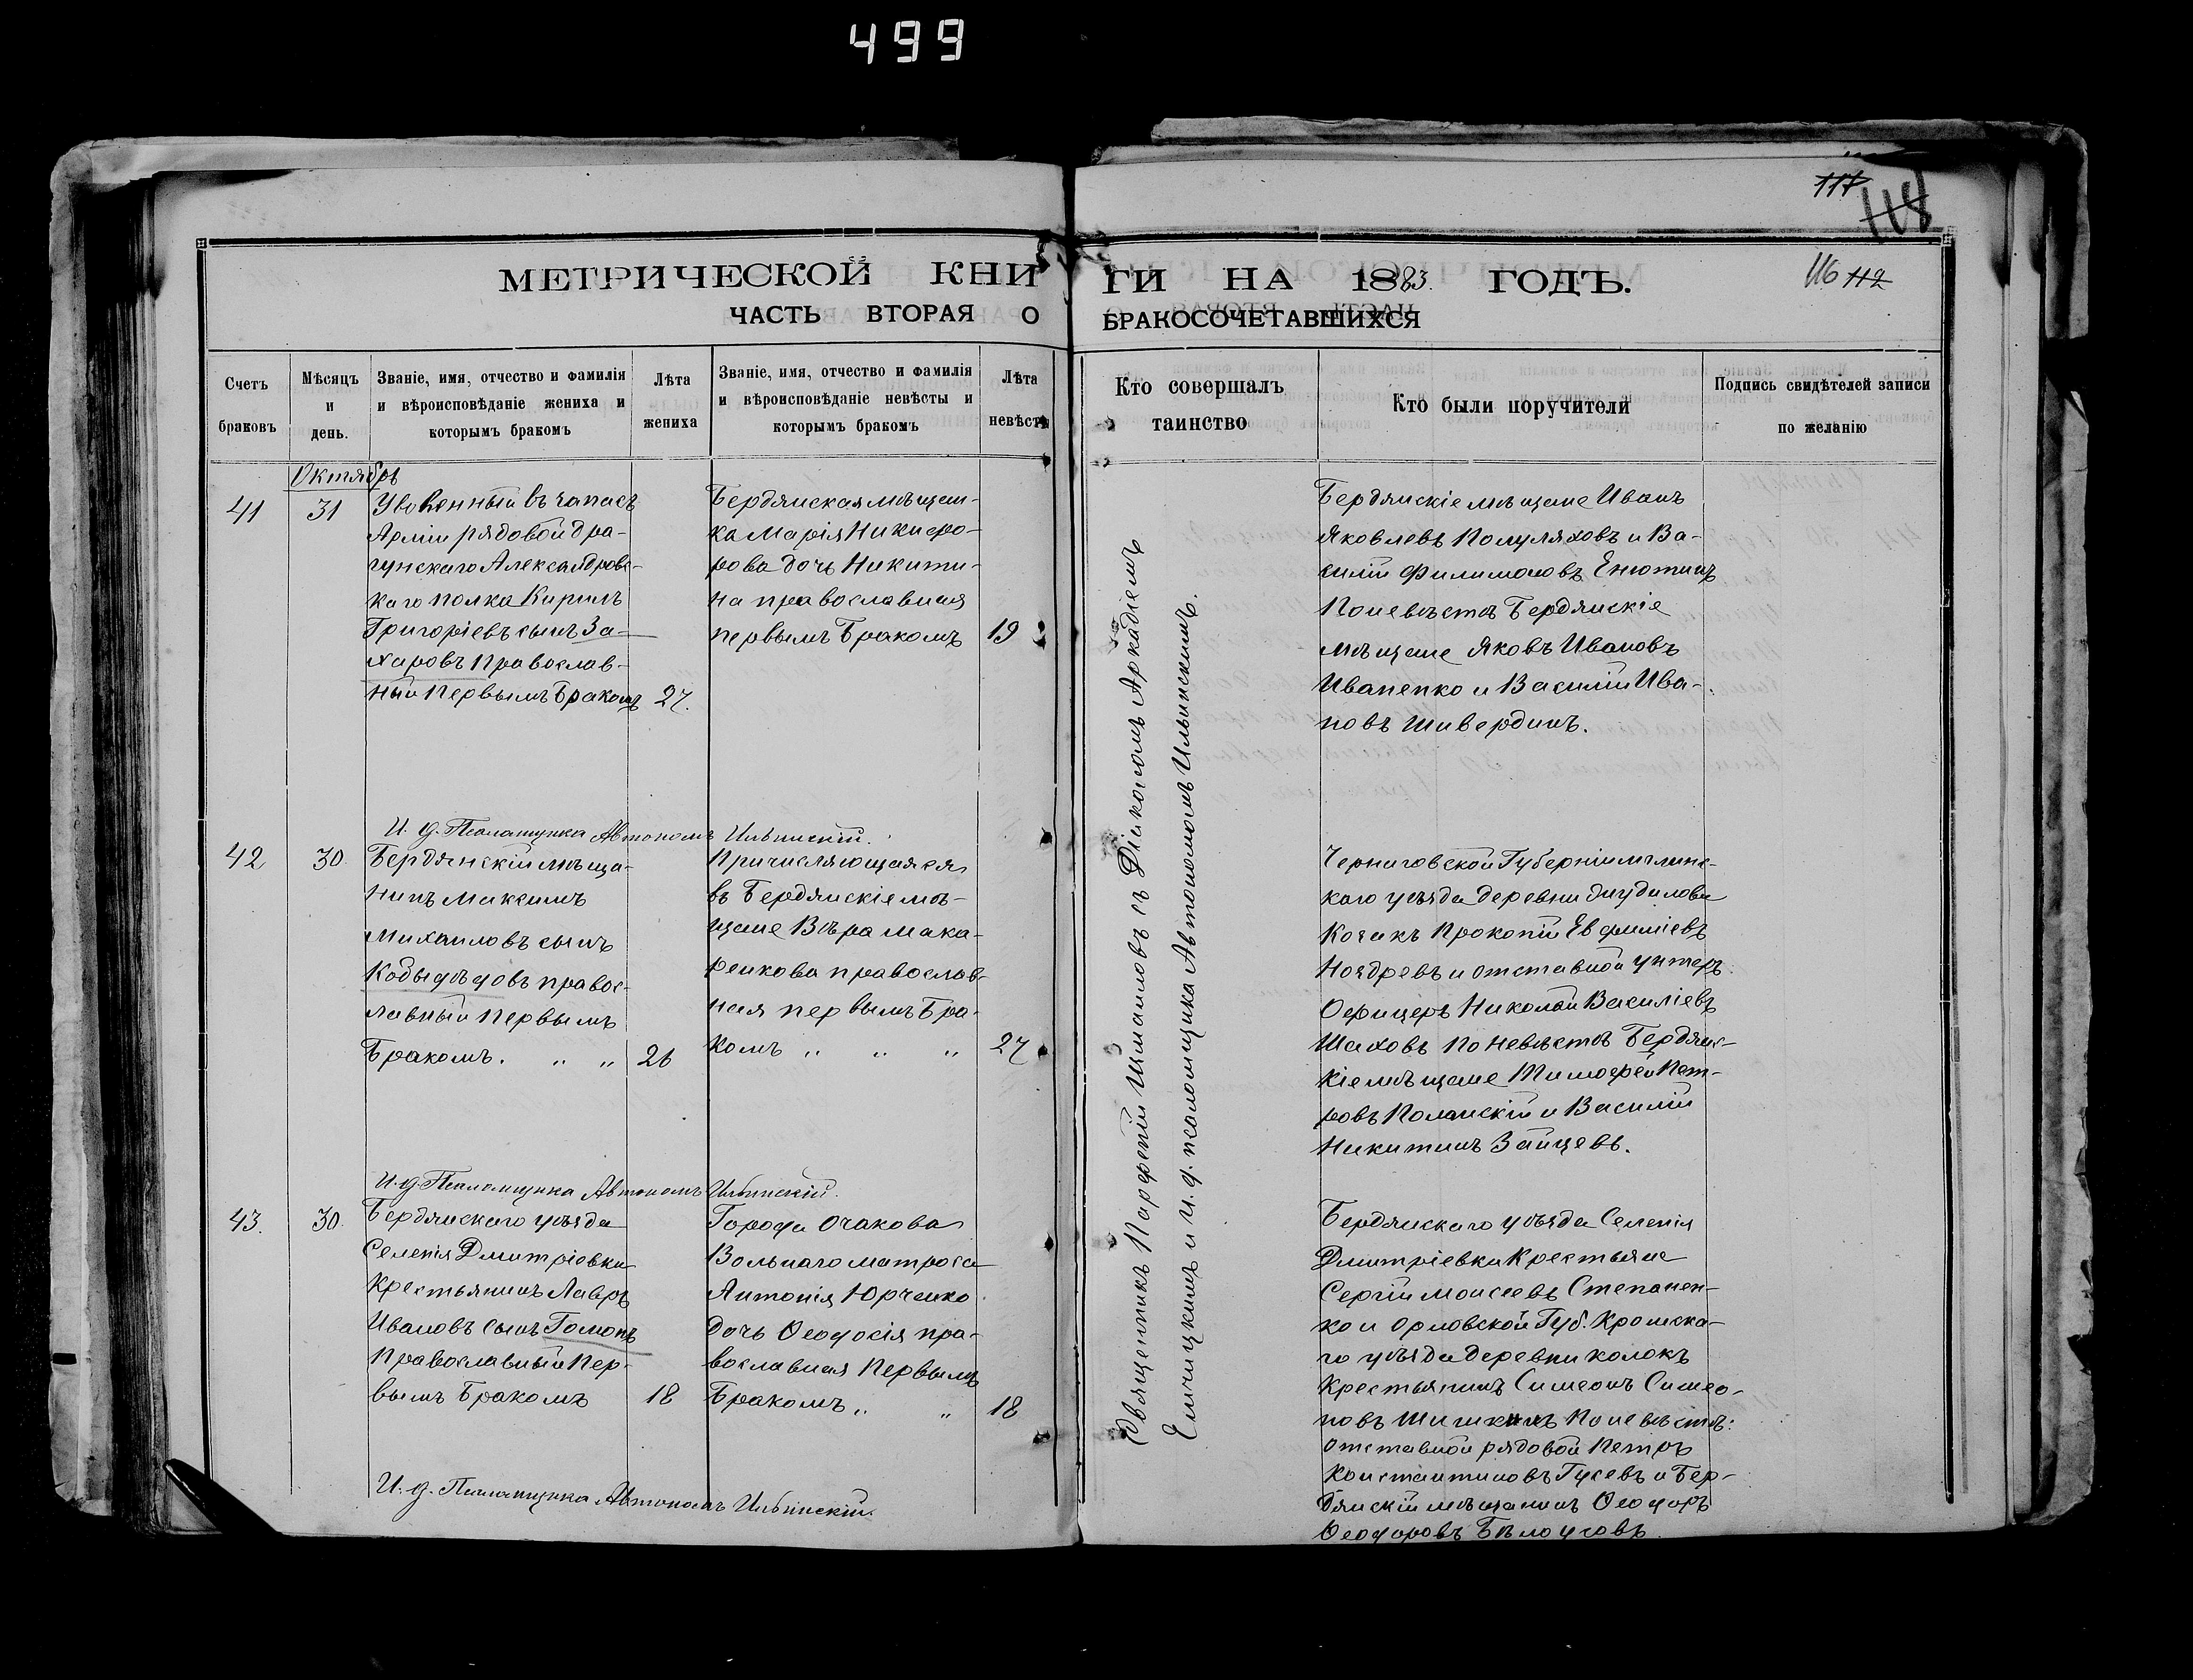 499
117
118
МЕТРИЧЕСКОЙ КНИ
ГИ НА 1883 ГОДЪ.
116 112
ЧАСТЬ ВТОРАЯ О
БРАКОСОЧЕТАВШИХСЯ
Счетъ браковъ
Мѣсяцъ и день.
Званіе, имя, отчество и фамилія и вѣроисповѣданіе жениха и которымъ бракомъ
Лѣта жениха
Званіе, имя, отчество и фамилія и вѣроисповѣданіе невѣсты и которымъ бракомъ
Лѣта невѣсты
Кто совершалъ таинство
Кто были поручители
Подпись свидѣтелей записи по желанію
Октябрь
41
31
Уволенный въ запасъ
Арміи рядовой дра-
гунскаго Александровс-
каго полка Кирилъ
Григоріевъ сынъ За-
харовъ Православ-
ный Первымъ Бракомъ
27.
Бердянская мѣщан-
ка Марія Никифо-
рова дочь Никити-
на православная
первымъ Бракомъ
19
Бердянскіе мѣщане Иванъ
Яковлевъ Полуляховъ и Ва-
силій Филимоновъ Енютинъ
По невѣстѣ Бердянскіе
мѣщане Яковъ Ивановъ
Иваненко и Василій Ива-
новъ Шивердинъ.
И. д. Псаломщика Автономъ Ильинскій.
42
30.
Бердянскій мѣща-
нинъ Максимъ
Михаиловъ сынъ
Кобыфѣдовъ правос-
лавный Первымъ
Бракомъ. „ „
26
Причисляющаяся
въ Бердянскіе мѣ-
щане Вѣра Мака-
ренкова православ-
ная первымъ Бра-
комъ „ „ „
27
Черниговской Губерніи мглинс-
каго уѣзда деревни
Козакъ Прокопій Евфиміевъ
Ноздревъ и отставной унтеръ
Офицеръ Николай Василіевъ
Шаховъ по невѣстѣ Бердянс-
кіе мѣщане Тимофей Пет-
ровъ Поланскій и Василій
Никитинъ Зайцевъ.
И. д. Псаломщика Автономъ Ильинскій.
43.
30.
Бердянскаго уѣзда
Селенія Дмитріевки
Крестьянинъ Лавръ
Ивановъ сынъ Гомонъ
Православный Пер-
вымъ Бракомъ
18
Города Очакова
Вольнаго матроса
Антонія Юрченко
дочь Ѳеодосія пра-
вославная Первымъ
Бракомъ „ „
18
Бердянскаго уѣзда Селенія
Дмитріевки Крестьяне
Сергій Моисеевъ Степанен-
ко и Орловской Губ. Кромска-
го уѣзда деревни Колокъ
Крестьянинъ Симеонъ Симео-
новъ Шишкинъ По невѣстѣ:
отставной рядовой Петръ
Константиновъ Гусевъ и Бер-
дянскій мѣщанинъ Ѳеодоръ
Ѳеодоровъ Бѣлоусовъ.
И. д. Псаломщика Автономъ Ильинскій.
Священникъ Парфеній Шмаиловъ съ Діакономъ Аркадіемъ
и и. д. псаломщика Автономомъ Ильинскимъ.